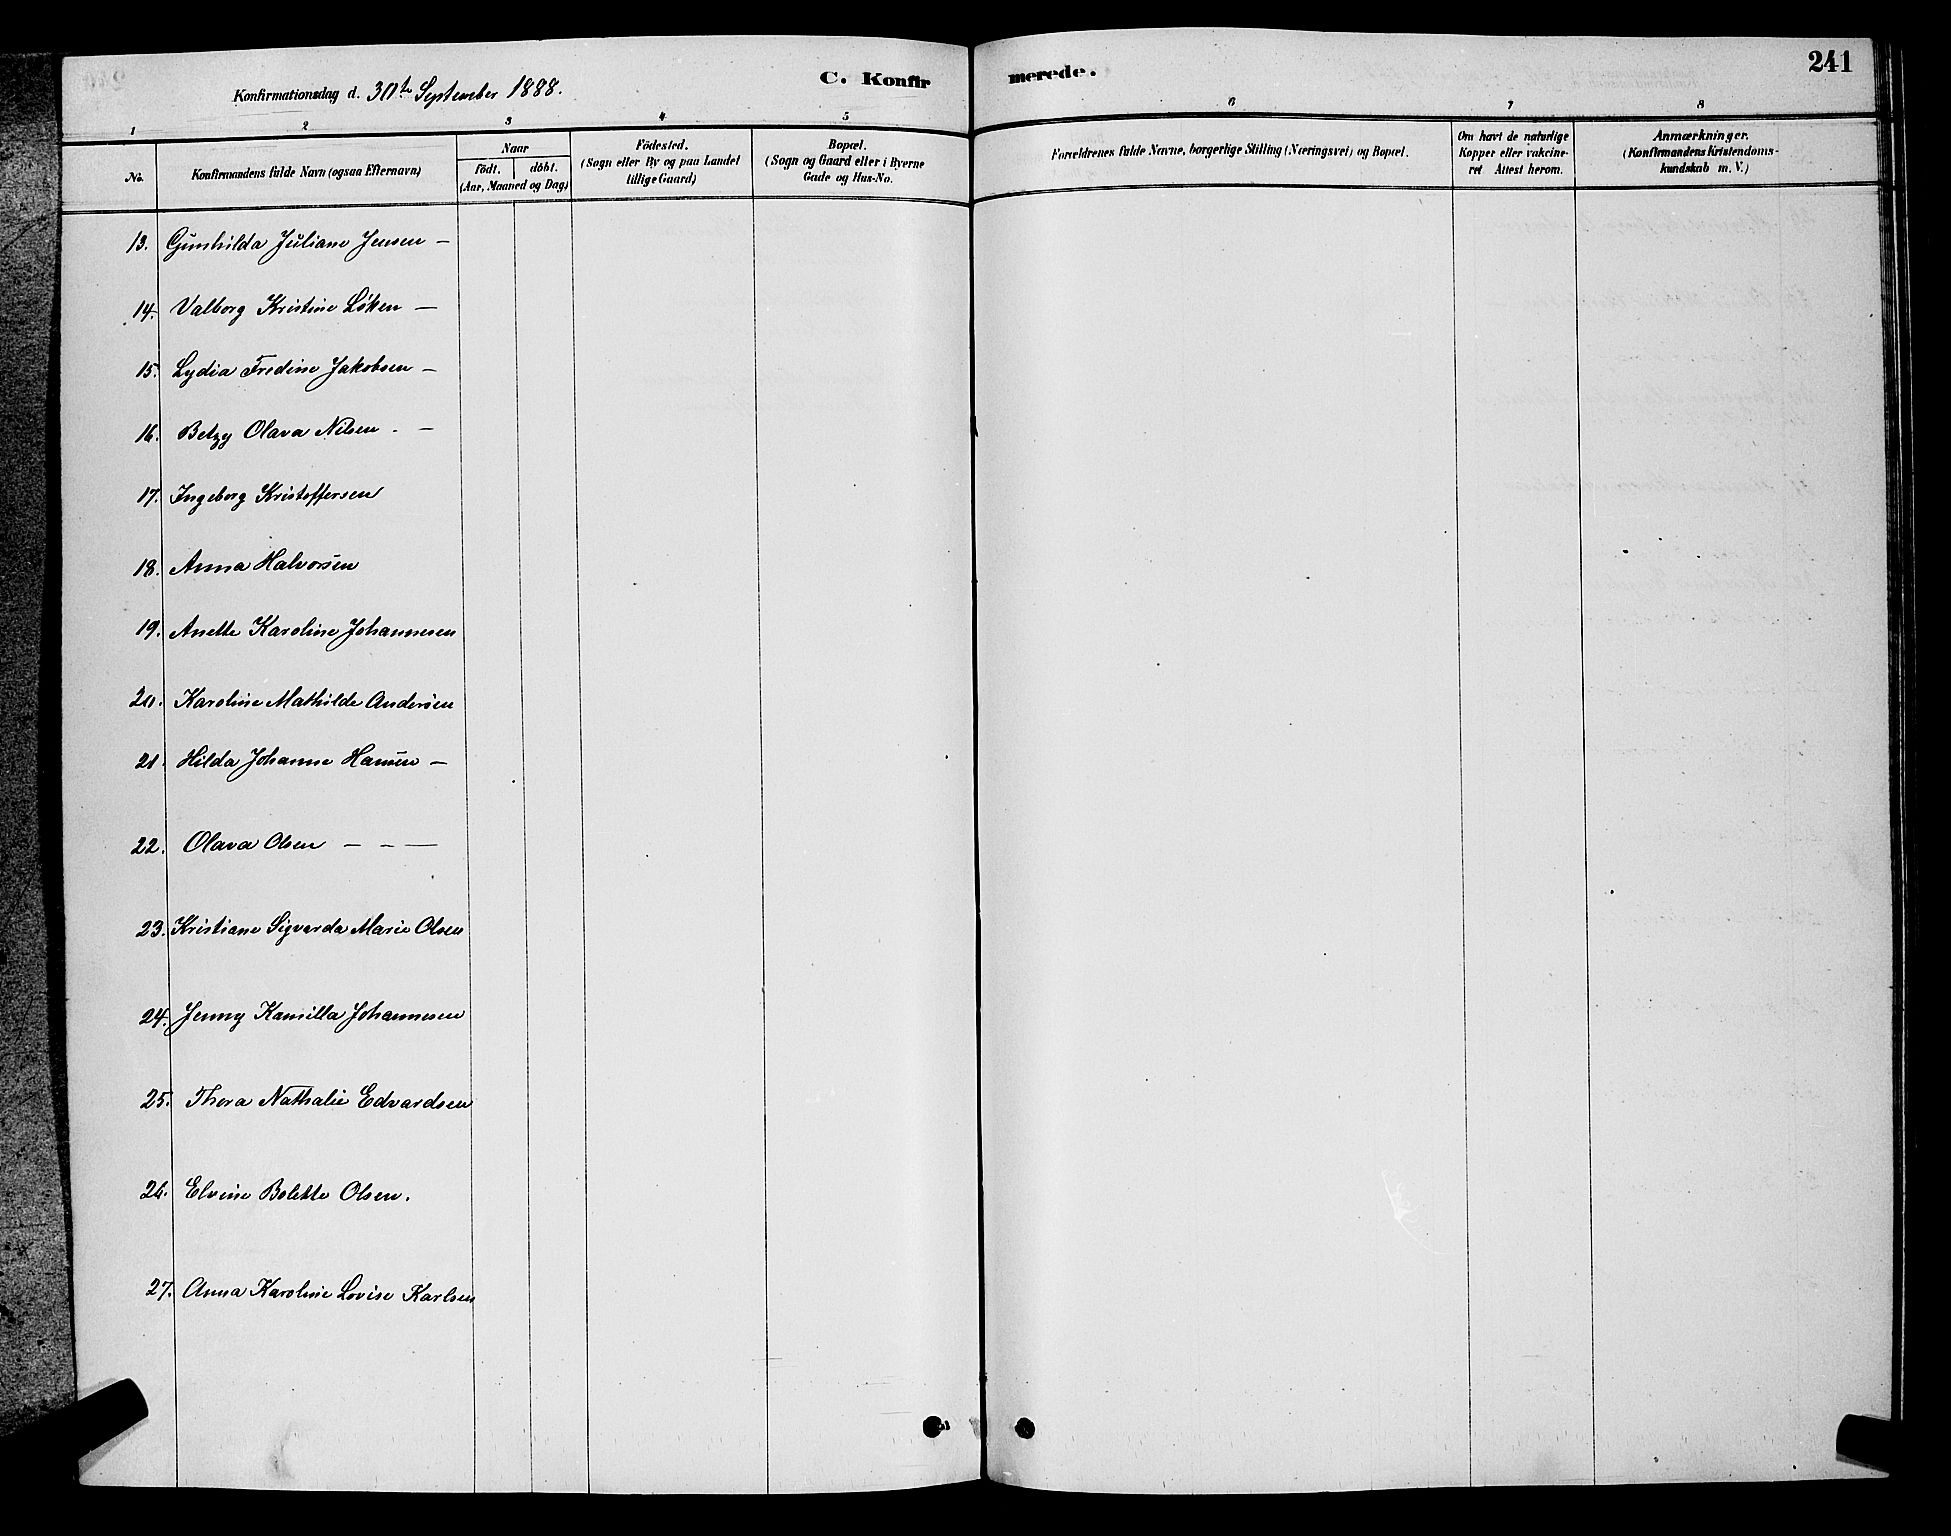 C. Konfirmerede.
241
Konfirmationsdag d. 30te September 1888.
1 2 3 4 5 6 7 8
No.
Konfirmandens fulde Navn (ogsaa Efternavn)
Naar
födt. döbt.
(Aar, Maaned og Dag)
Födested.
(Sogn eller By og paa Landet
tillige Gaard)
Bopæl.
(Sogn og Gaard eller i Byerne
Gade og Hus-No.
Forældrenes fulde Navne, borgerlige Stilling (Næringsvei) og Bopæl.
Om havt de naturlige
Kopper eller vakcine-
ret Attest herom.
Anmærkninger.
(Konfirmandens Kristendoms-
kundskab m. V.)
13. Gunhilda Juliane Jensen —
14. Valborg Kristine Löken —
15. Lydia Fredine Jakobsen —
16. Betzy Olava Nilsen. —
17. Ingeborg Kristoffersen
18. Anna Halvorsen
19. Anette Karoline Johannesen
20. Karoline Mathilde Andersen
21. Hilda Johanne Hansen —
22. Olava Olsen — – —
23. Kristiane Sigvarda Marie Olsen
24. Jenny Kamilla Johannesen
25. Thora Nathalie Edvardsen
26. Elvine Bolette Olsen.
27. Anna Karoline Lovise Karlsen